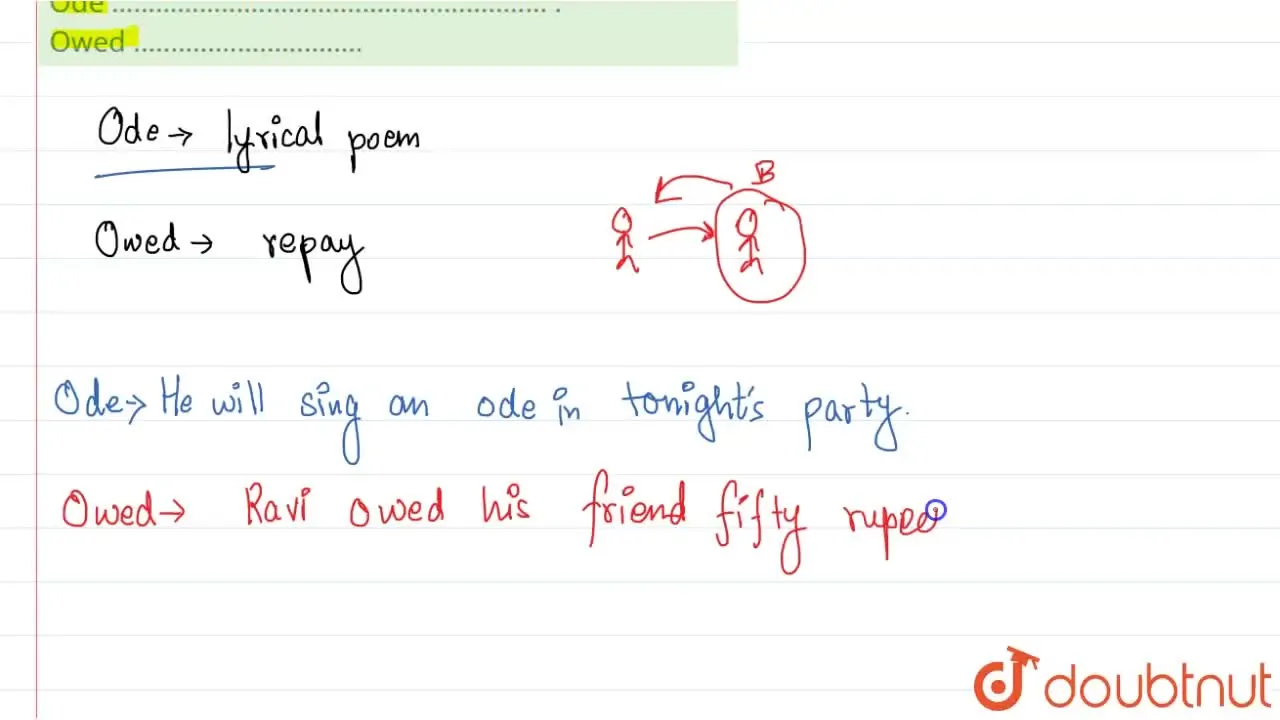 Ode ............................................................ .
Owed ...............................
Ode → lyrical poem
B
Owed → repay
Ode → He will sing an ode in tonight's party.
Owed → Ravi owed his friend fifty rupee
doubtnut